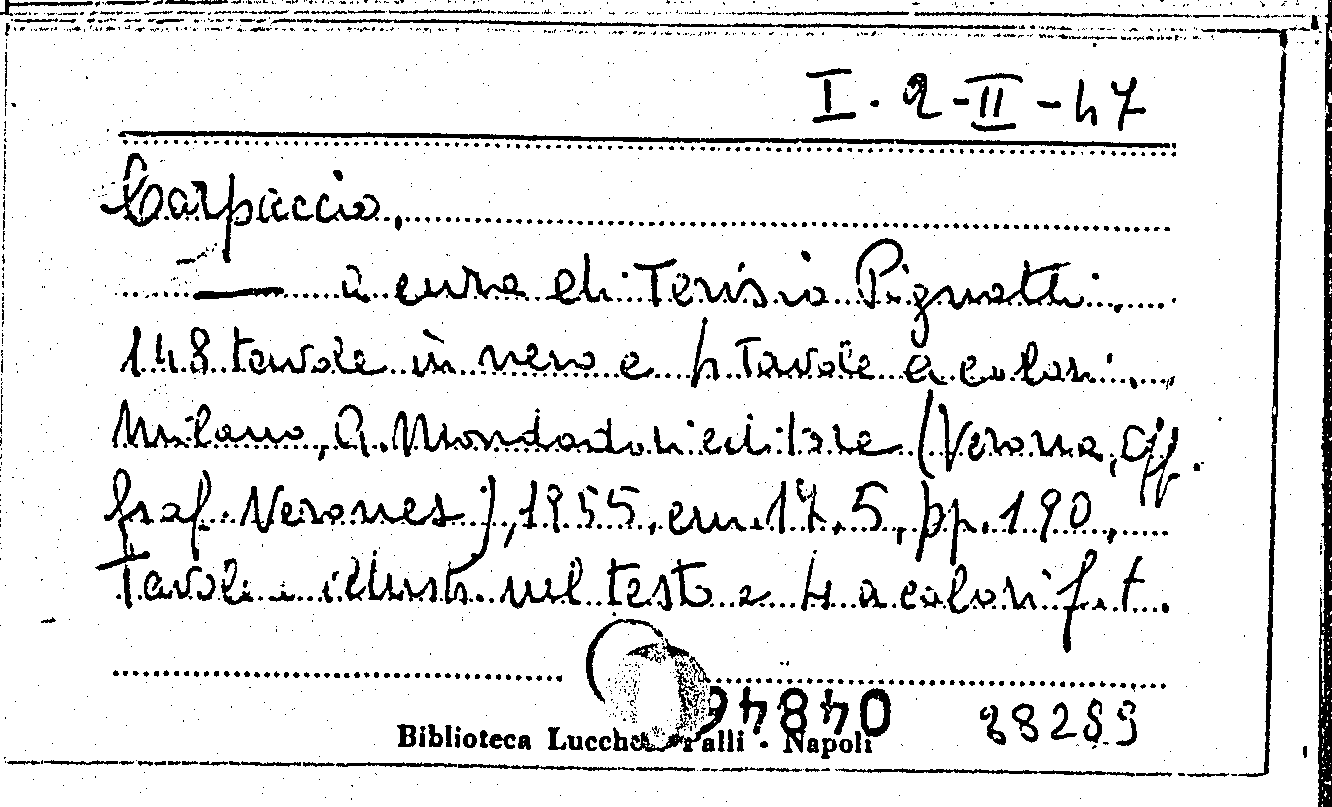 I. 2-II-47
Carpaccio,
— a cura di Terisio Pignatti.
148 tavole in nero e 4 tavole a colori.
Milano, A. Mondadori editore (Verona, Off.
Graf. Verones), 1955, cm. 17.5, pp. 190,
Tavole e illustr. nel testo e 4 a colori f. t.
Biblioteca Lucche Palli - Napoli